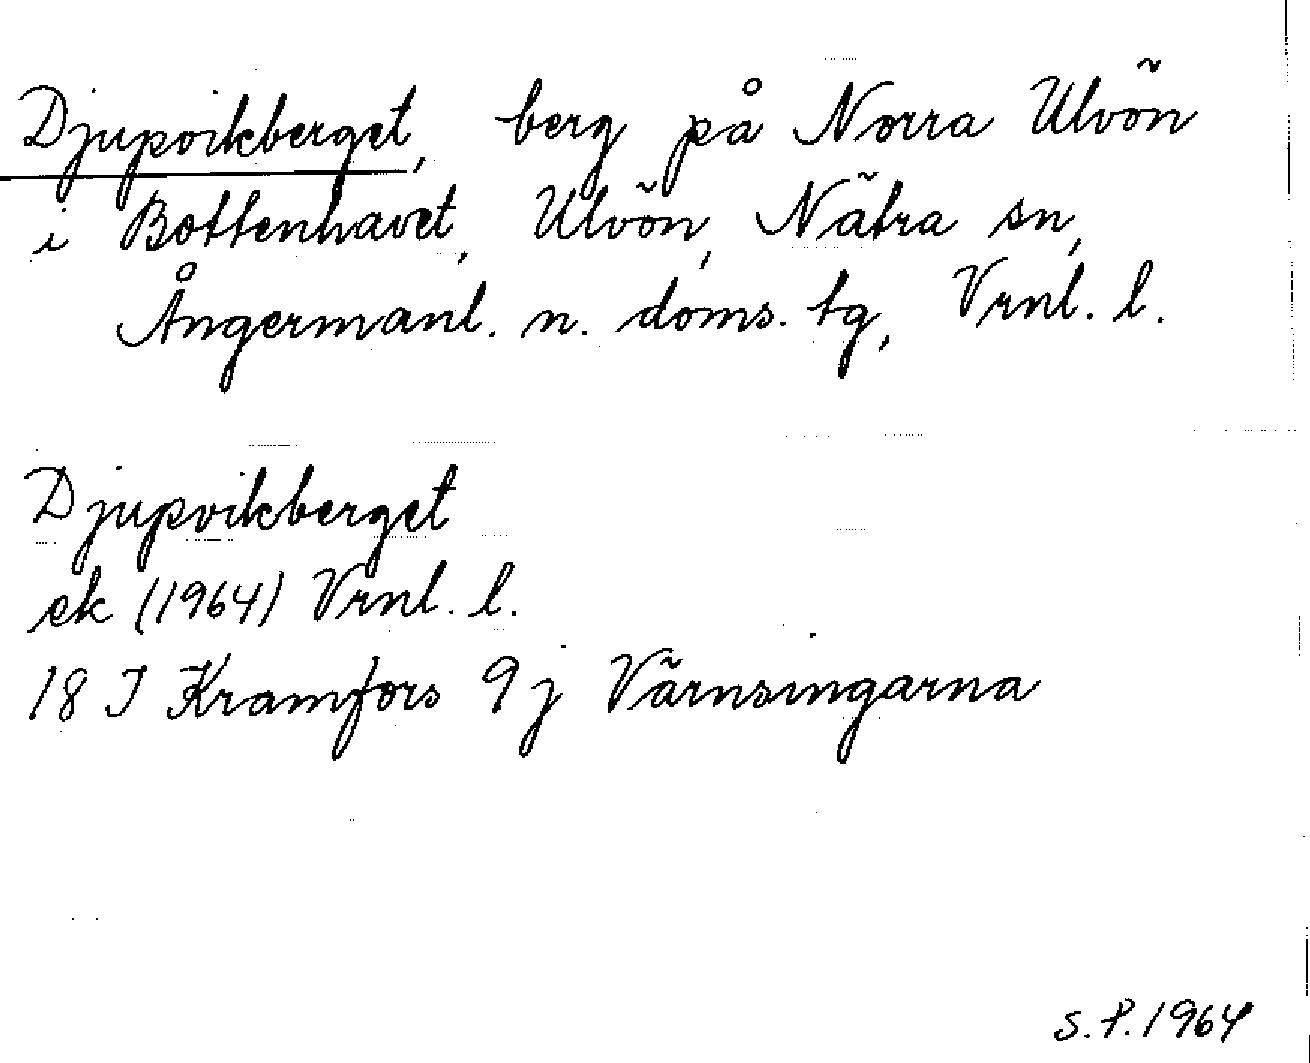 Djupvikberget, berg på Norra Ulvön
i Bottenhavet, Ulvön, Nätra sn,
Ångermanl. n. doms. tg, Vrnl. l.
Djupvikberget
ek (1964) Vrnl. l.
18 I Kramfors 9j Värnsingarna
S.P. 1964